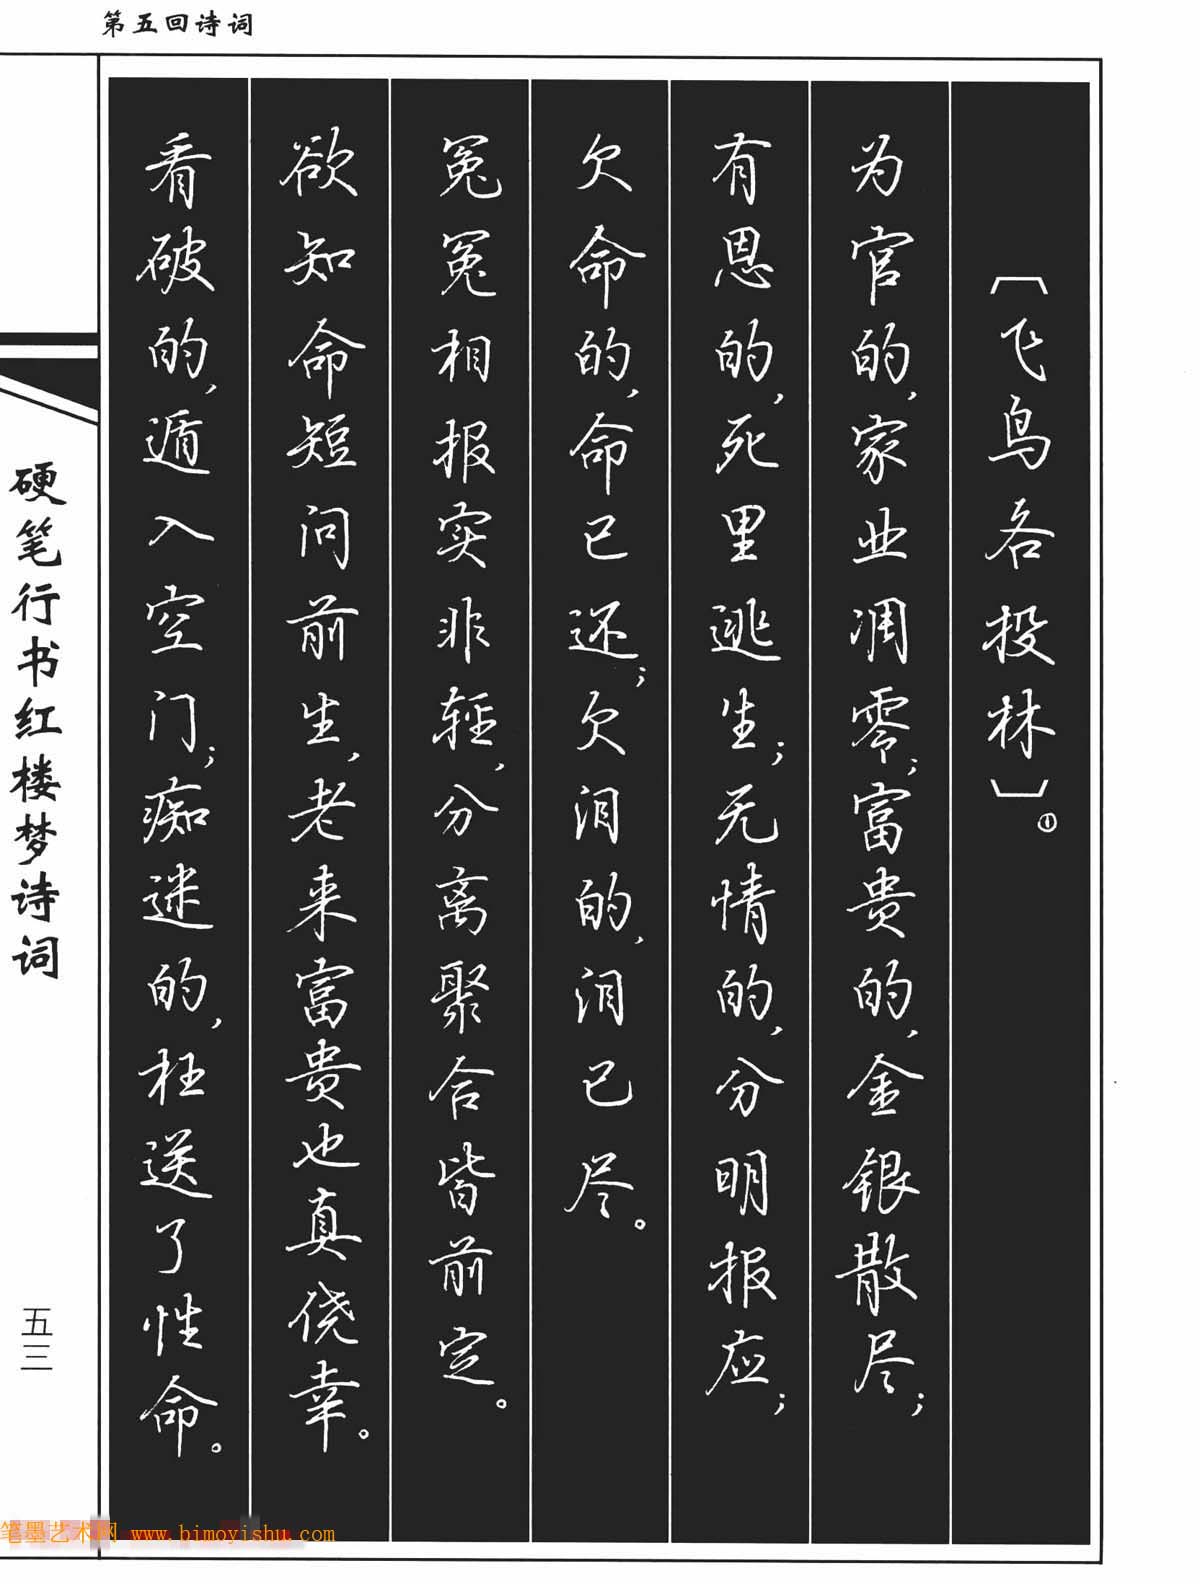 第五回诗词
〔飞鸟各投林〕①
为官的，家业凋零；富贵的，金银散尽；
有恩的，死里逃生；无情的，分明报应；
欠命的，命已还；欠泪的，泪已尽。
冤冤相报实非轻，分离聚合皆前定。
欲知命短问前生，老来富贵也真侥幸。
看破的，遁入空门；痴迷的，枉送了性命。
硬笔行书红楼梦诗词
五三
笔墨艺术网 www.bimoyishu.com